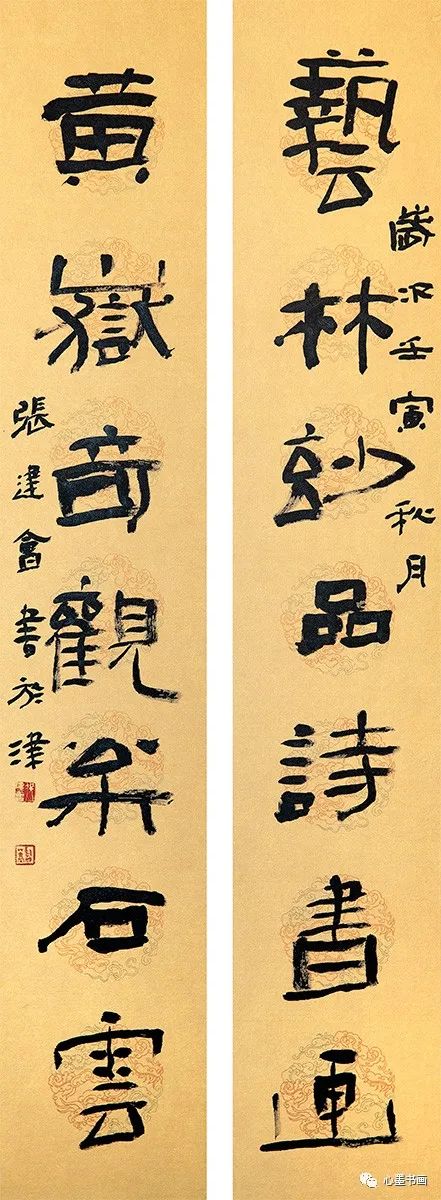 藝林玅品詩書画
歲次壬寅秋月
黄嶽奇觀枀石雲
張建會書於津
心墨书画